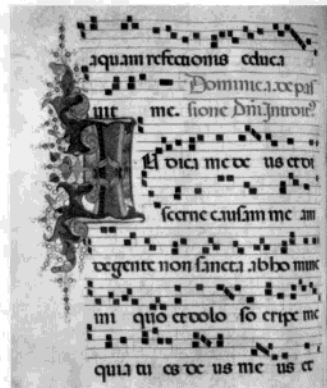 aquam refectionis educa
Dominica de pas
uit me. sione Dñi Introit?
udica me de us et di
scerne causam me am
de gente non sancta ab ho mine
ini quo et dolo so eripe me
quia tu es de us me us et